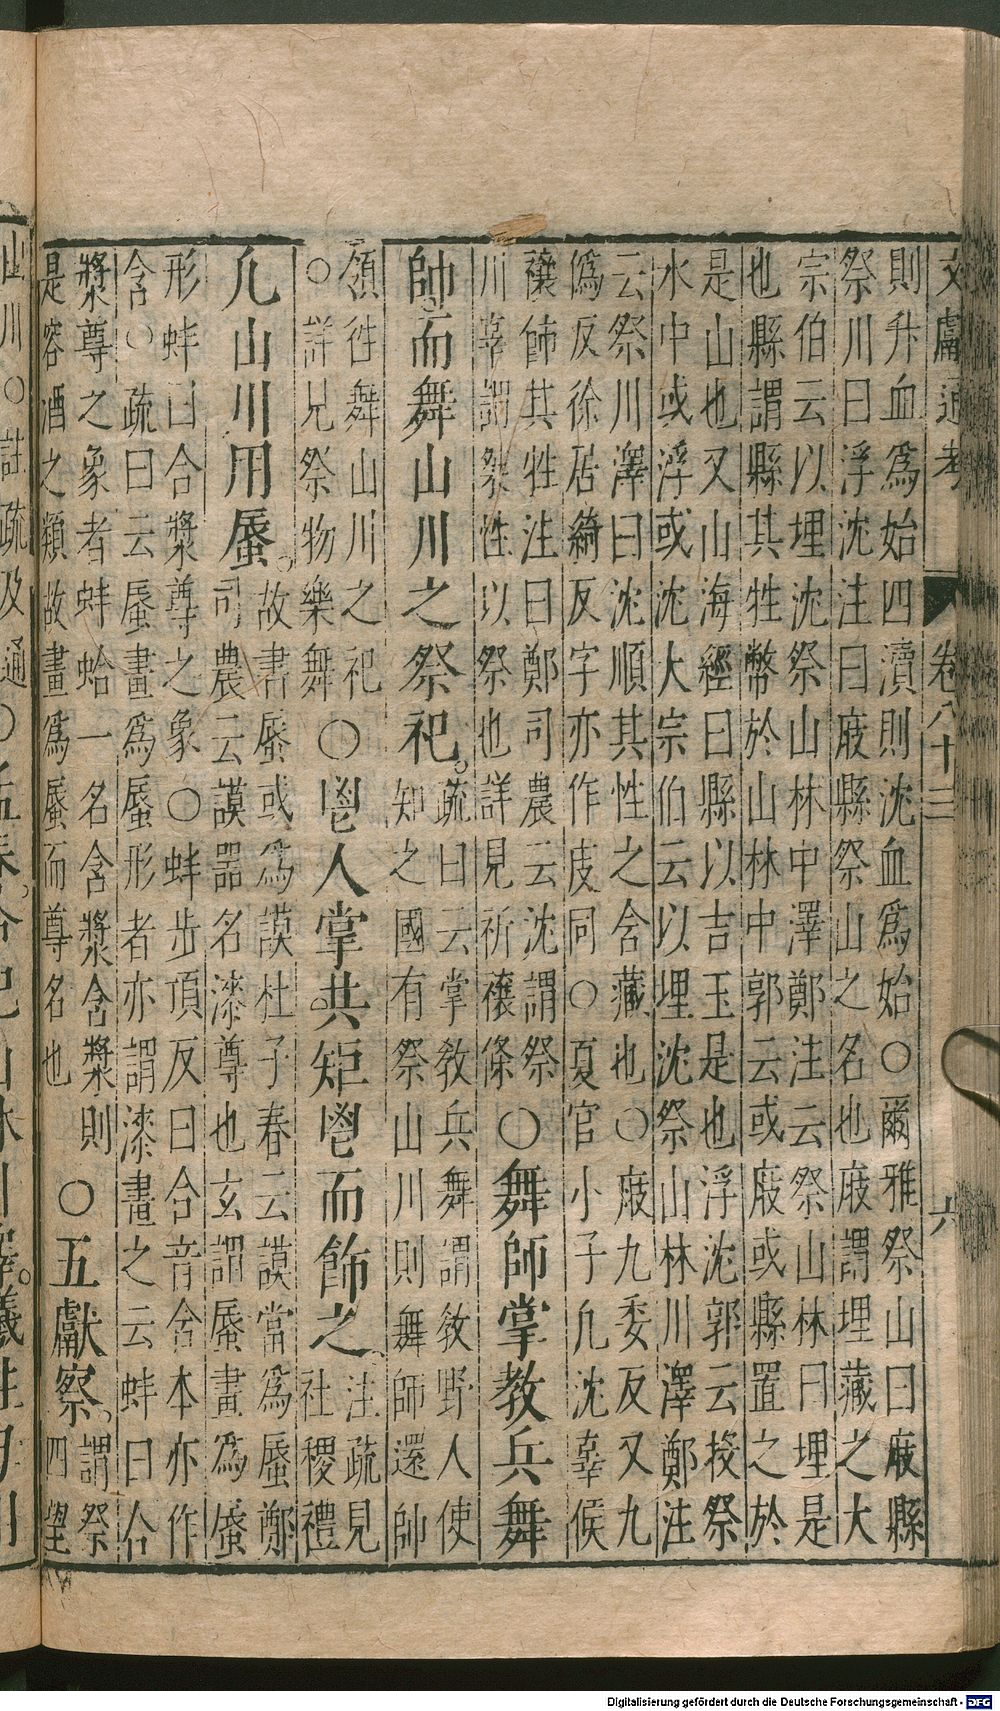 文獻通考 卷八十三 六
則升血爲始四瀆則沈血爲始○爾雅祭山曰庪縣
祭川曰浮沈注曰庪縣祭山之名也庪謂埋藏之大
宗伯云以埋沈祭山林中澤鄭注云祭山林曰埋是
也縣謂縣其牲幣於山林中郭云或庪或縣置之於
是山也又山海經曰縣以吉玉是也浮沈郭云投祭
水中或浮或沈大宗伯云以埋沈祭山林川澤鄭注
云祭川澤曰沈順其性之含藏也○庪九委反又九
僞反徐居綺反字亦作庋同○夏官小子凡沈辜候
禳飾其牲注曰鄭司農云沈謂祭
川辜謂祭性以祭也詳見祈禳條
○舞師掌教兵舞
帥而舞山川之祭祀。
疏曰云掌教兵舞謂教野人使
知之國有祭山川則舞師還帥
領徃舞山川之祀
○詳見祭物樂舞
○鬯人掌共秬鬯而飾之。
注疏見
社稷禮
凡山川用蜃。
故書蜃或爲謨杜子春云謨當爲蜃鄭
司農云謨器名漆尊也玄謂蜃畫爲蜃
形蚌曰合漿尊之象○蚌步項反曰合音含本亦作
含○疏曰云蜃畫爲蜃形者亦謂漆畫之云蚌曰合
漿尊之象者蚌蛤一名含漿含漿則
是容酒之類故畫爲蜃而尊名也
○五獻察。
謂祭
四望
Digitalisierung gefördert durch die Deutsche Forschungsgemeinschaft - DFG